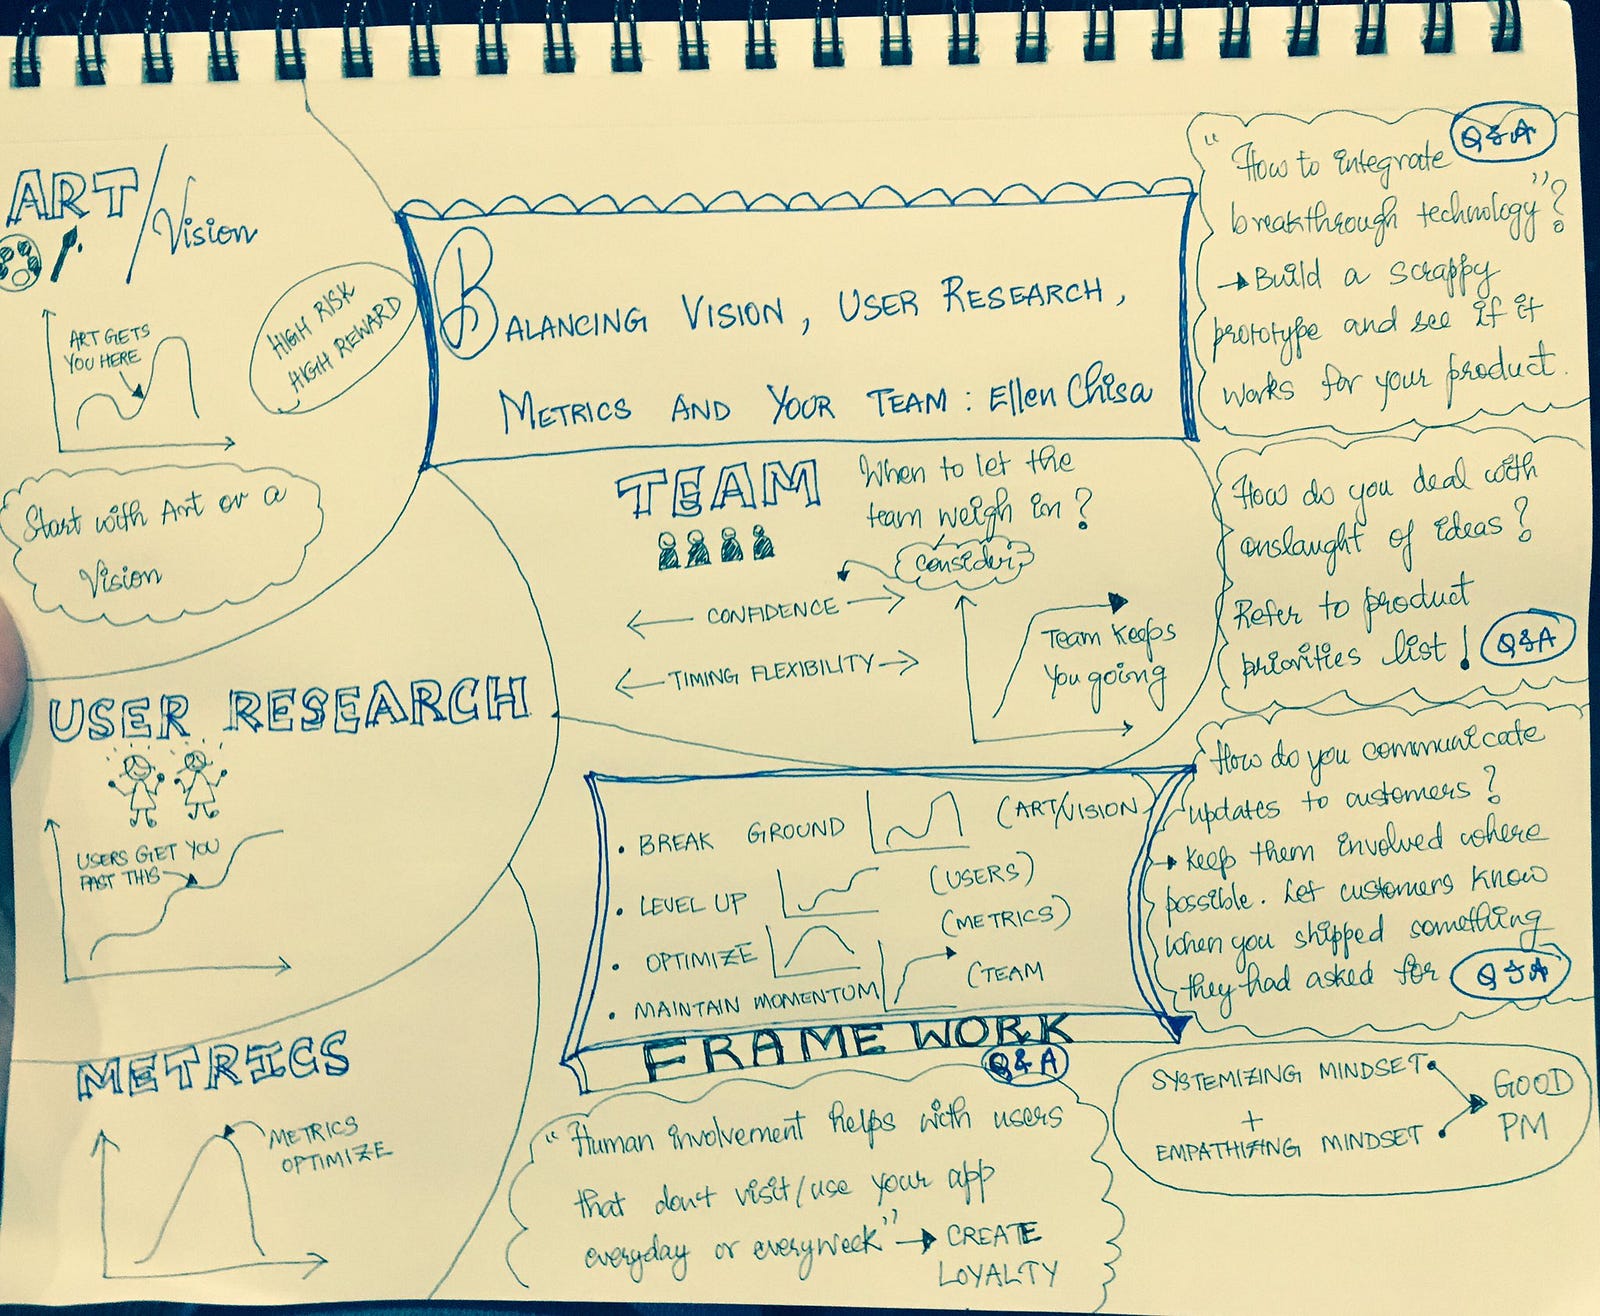 BALANCING VISION, USER RESEARCH,
METRICS AND YOUR TEAM : Ellen Chisa
ART/Vision
HIGH RISK
HIGH REWARD
ART GETS
YOU HERE
Start with Art or a
Vision
USER RESEARCH
USERS GET YOU
PAST THIS
METRICS
METRICS
OPTIMIZE
TEAM
When to let the
team weigh in?
Consider
CONFIDENCE
TIMING FLEXIBILITY
Team keeps
You going
• BREAK GROUND (ART/VISION
• LEVEL UP (USERS)
• OPTIMIZE (METRICS)
• MAINTAIN MOMENTUM (TEAM
FRAMEWORK
Q&A
"Human involvement helps with users
that don't visit/use your app
everyday or everyweek" → CREATE
LOYALTY
Q&A
"How to integrate
breakthrough technology"?
→ Build a scrappy
prototype and see if it
works for your product.
How do you deal with
onslaught of ideas?
Refer to product
priorities list! Q&A
How do you communicate
updates to customers?
→ Keep them involved where
possible. Let customers know
when you shipped something
they had asked for Q&A
SYSTEMIZING MINDSET
+
EMPATHIZING MINDSET
GOOD
PM